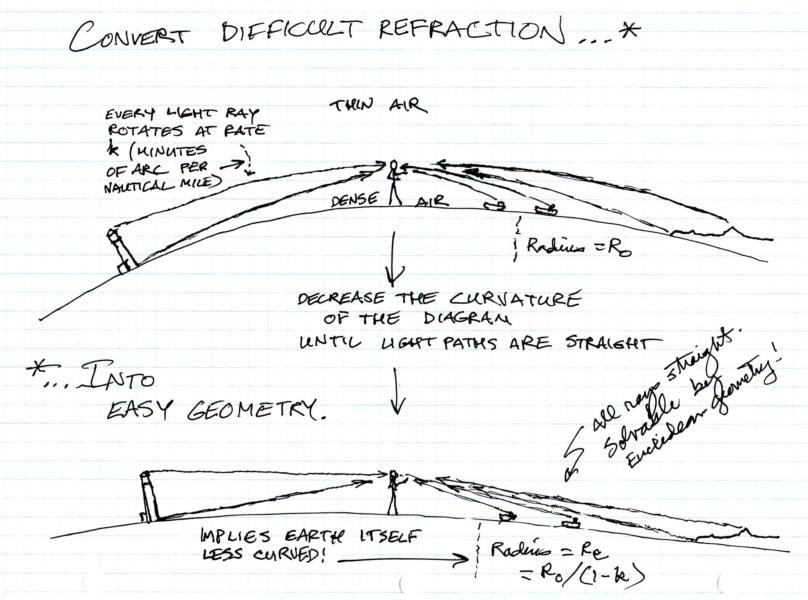 CONVERT DIFFICULT REFRACTION...*
THIN AIR
EVERY LIGHT RAY
ROTATES AT RATE
k (MINUTES
OF ARC PER
NAUTICAL MILE)
DENSE AIR
Radius = R₀
DECREASE THE CURVATURE
OF THE DIAGRAM
UNTIL LIGHT PATHS ARE STRAIGHT
*... INTO
EASY GEOMETRY.
All rays straight.
Solvable by
Euclidean geometry!
IMPLIES EARTH ITSELF
LESS CURVED!
Radius = Re
= R₀/(1-k)